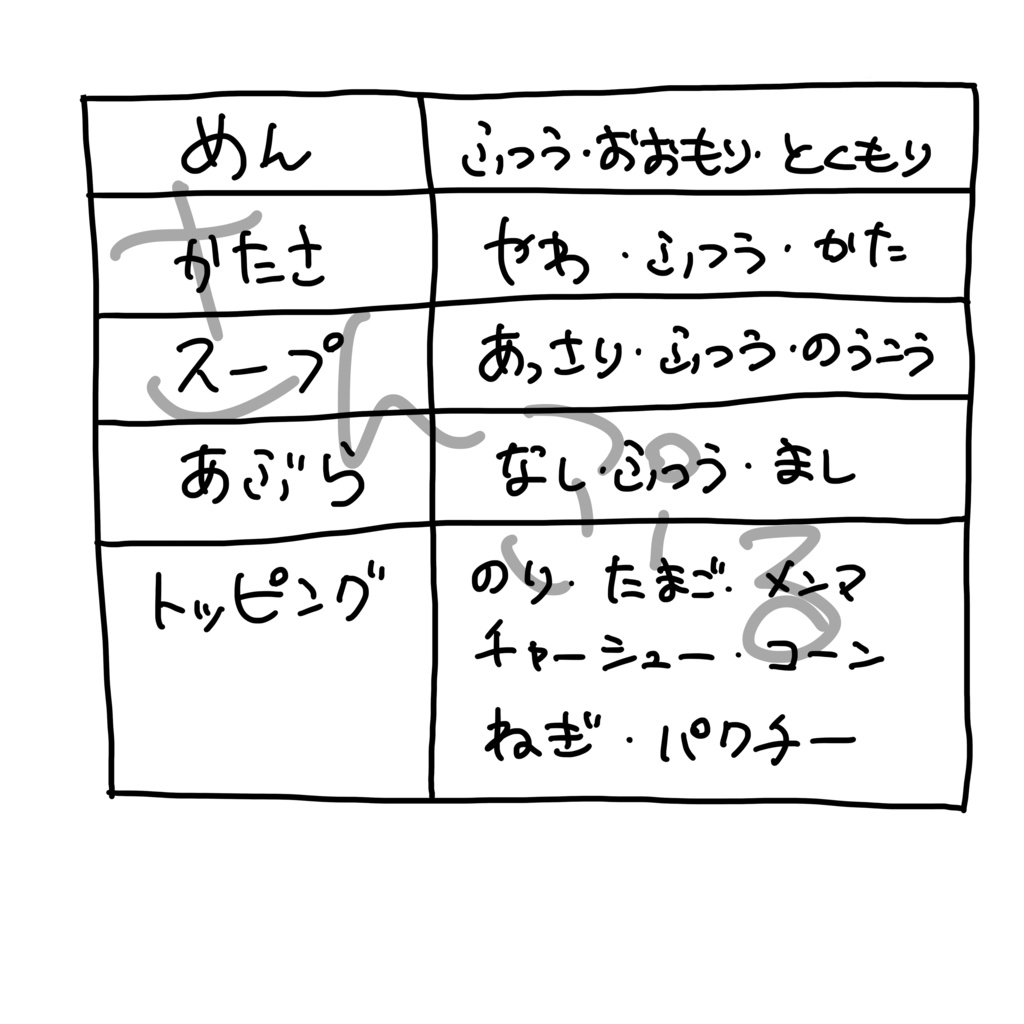 めん ふつう・おおもり・とくもり
かたさ やわ・ふつう・かた
スープ あっさり・ふつう・のうこう
あぶら なし・ふつう・まし
トッピング のり・たまご・メンマ
チャーシュー・コーン
ねぎ・パクチー
さんぷる